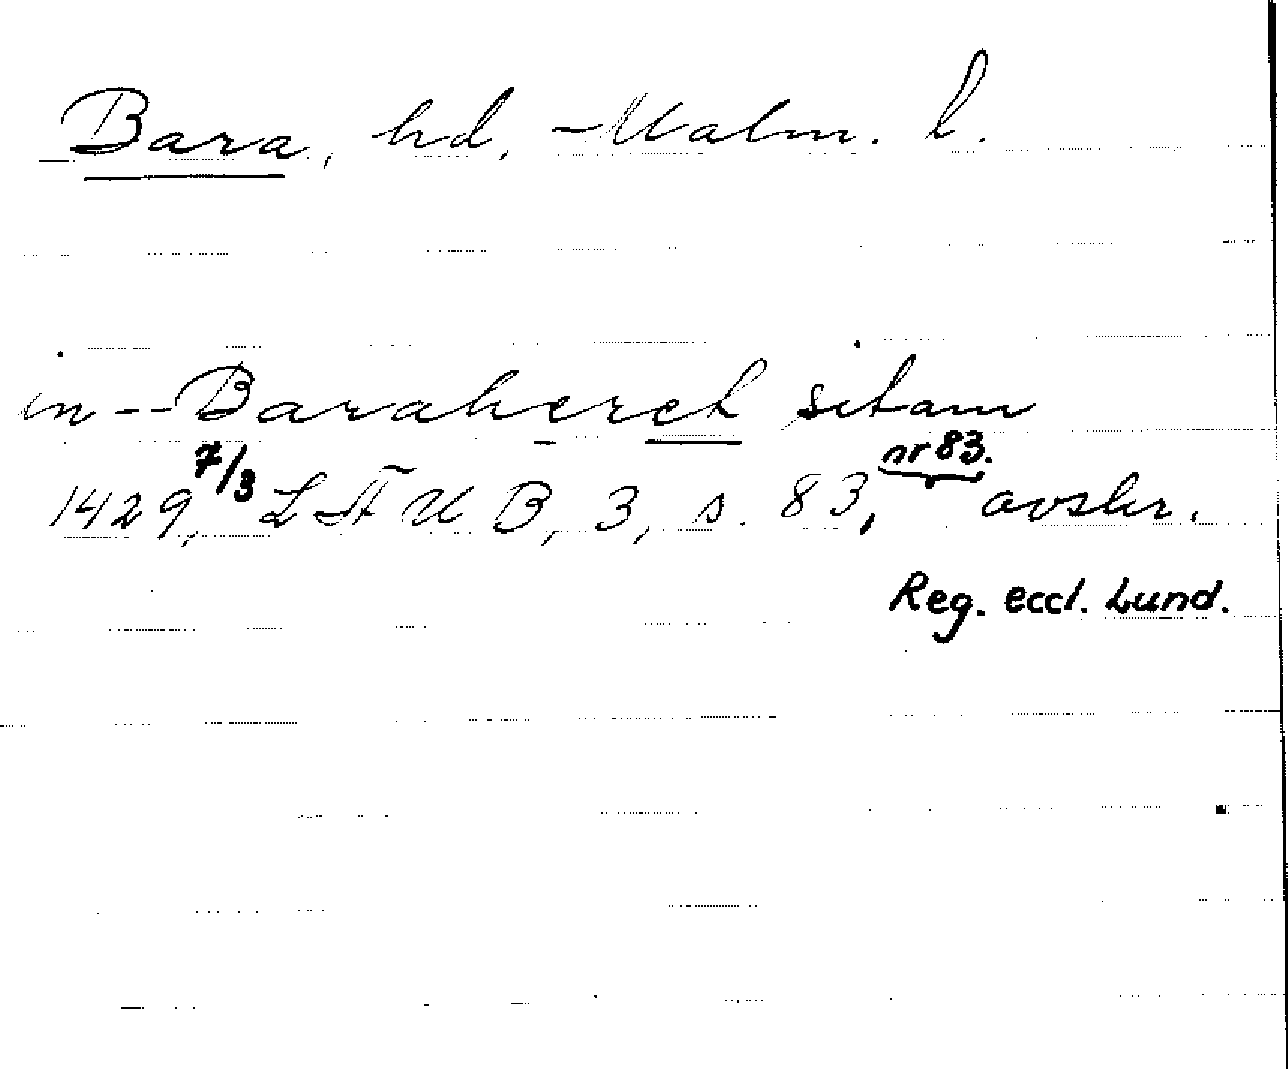 Bara, hd, Malm. l.
in -- Baraheret sitam
1429, 7/3 LÄUB, 3, s. 83, nr 83. avskr.
Reg. eccl. Lund.